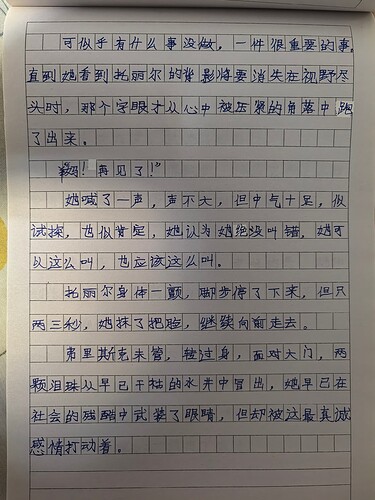 可似乎有什么事没做，一件很重要的事，
直到她看到托丽尔的背影将要消失在视野尽
头时，那个字眼才从心中被压紧的角落中跑
了出来。
“妈！再见了！”
她喊了一声，声不大，但中气十足，似
试探，也似肯定，她认为她绝没叫错，她可
以这么叫，也应该这么叫。
托丽尔身体一颤，脚步停了下来，但只
两三秒，她抹了把脸，继续向前走去。
弗里斯克未管，转过身，面对大门，两
颗泪珠从早已干枯的水井中冒出，她早已在
社会的残酷中武装了眼睛，但却被这最真诚
感情打动着。